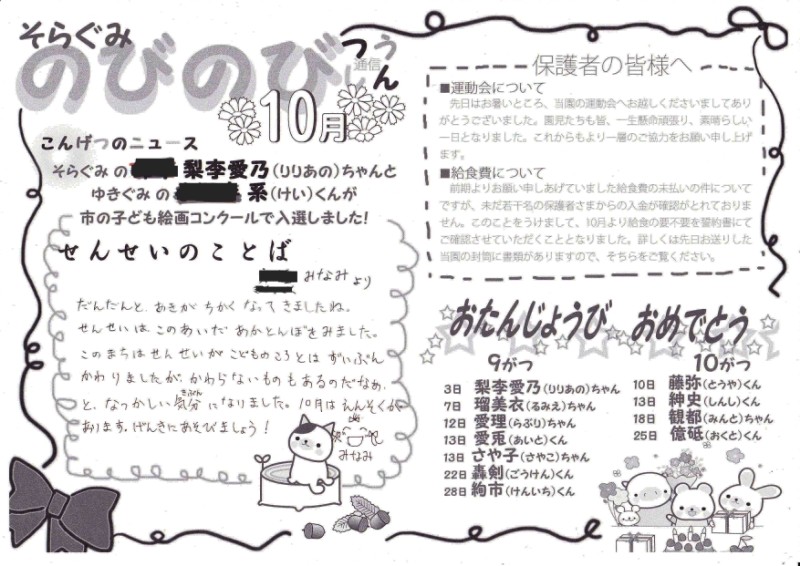 そらぐみ
のびのび つうしん
通信
10月
こんげつのニュース
そらぐみ の 梨李愛乃(りりあの)ちゃんと
ゆきぐみ の 系(けい)くんが
市の子ども絵画コンクールで入選しました!
せんせいのことば
みなみ より
だんだんと、あきが ちかく なって きましたね。
せんせいは このあいだ あかとんぼを みました。
この まちは せんせいが こどもの ころとは ずいぶん
かわりましたが、かわらない ものも あるのだなぁ、
と、なつかしい 気分 になりました。10月は えんそくが
きぶん
あります。げんきに あそびましょう!
みなみ
保護者の皆様へ
■運動会について
先日はお暑いところ、当園の運動会へお越しくださいましてあり
がとうございました。園児たちも皆、一生懸命頑張り、素晴らしい
一日となりました。これからもより一層のご協力をお願い申し上げ
ます。
■給食費について
前期よりお願い申しあげていました給食費の未払いの件について
ですが、未だ若干名の保護者さまからの入金が確認がとれておりま
せん。このことをうけまして、10月より給食の要不要を誓約書にて
ご確認させていただくこととなりました。詳しくは先日お送りした
当園の封筒に書類がありますので、そちらをご覧ください。
おたんじょうび おめでとう
9がつ
3日 梨李愛乃(りりあの)ちゃん
7日 瑠美衣(るみえ)ちゃん
12日 愛理(らぶり)ちゃん
13日 愛兎(あいと)くん
13日 さや子(さやこ)ちゃん
22日 轟剣(ごうけん)くん
28日 絢市(けんいち)くん
10がつ
10日 藤弥(とうや)くん
13日 紳史(しんし)くん
18日 観都(みんと)ちゃん
25日 億砥(おくと)くん